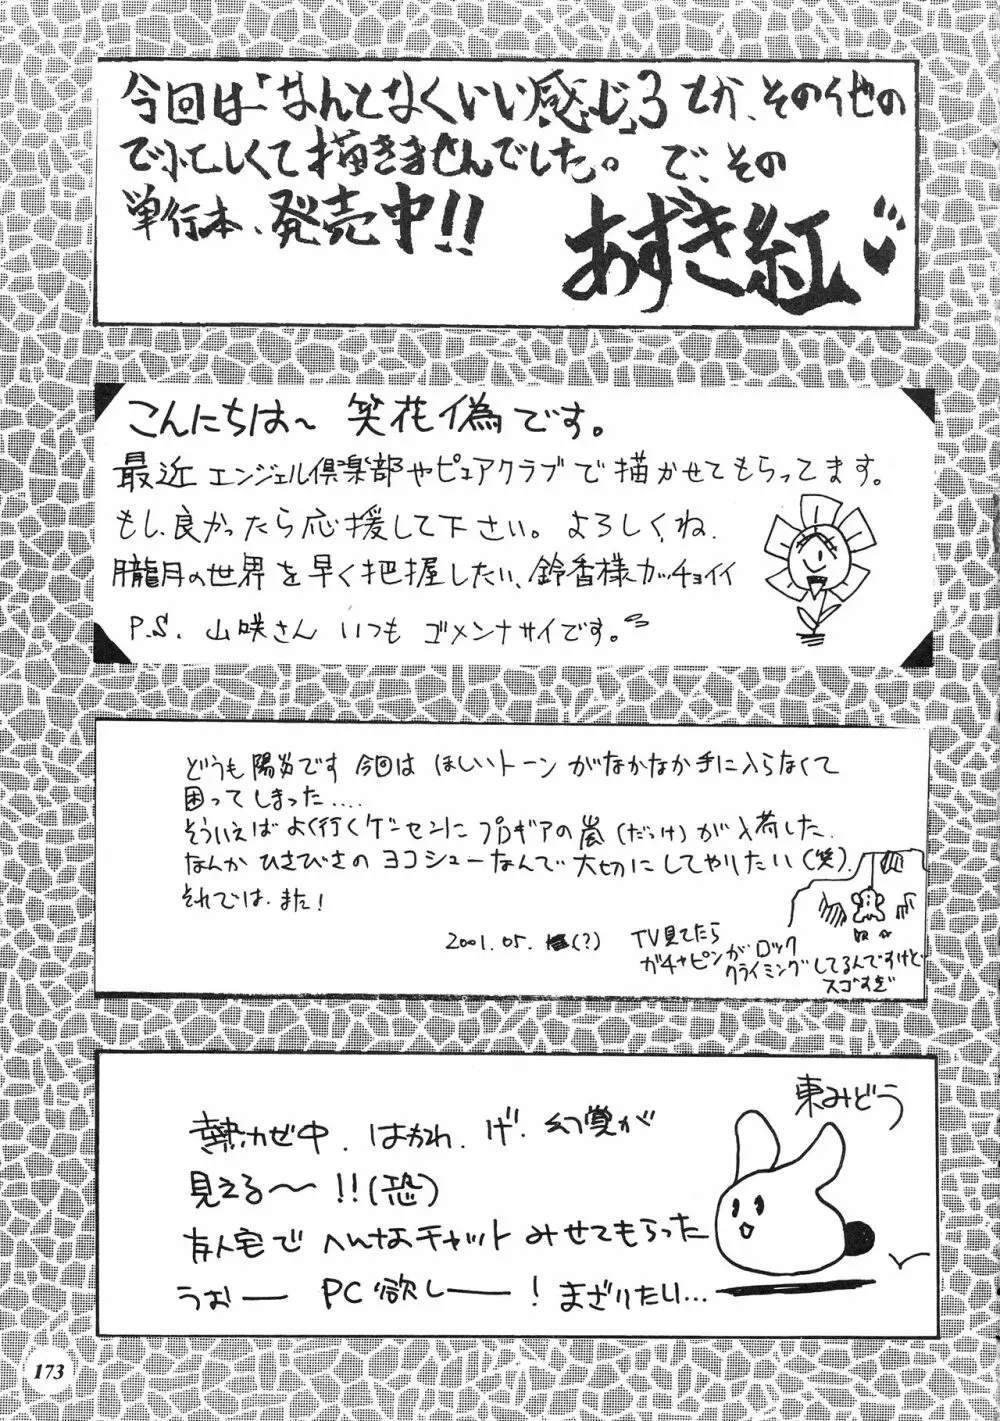 今回は「なんとなくいい感じ」3 とか、その他の
で忙しくて描きませんでした。 で、その
単行本、発売中!!
あずき紅
こんにちは〜 笑花偽です。
最近エンジェル倶楽部やピュアクラブで描かせてもらってます。
もし良かったら応援して下さい。よろしくね
朧月の世界を早く把握したい、鈴香様カッチョイイ
P.S. 山咲さん いつも ゴメンナサイです。
どうも陽炎です 今回は ほしいトーン がなかなか手に入らなくて
困ってしまった....
そういえば よく行くゲーセンに プロギアの嵐(だっけ)が入荷した.
なんか ひさびさの ヨコシューなんで 大切にしてやりたい(笑).
それでは、また!
2001.05. (?)
TV見てたら
ガチャピンがロック
クライミングしてるんですけど
スゴすぎ
東みどう
熱カゼ中. はかれ. げ. 幻覚が
見える〜 !!(恐)
友人宅で へんなチャット みせてもらった
うおー PC欲しー! まざりたい...
173